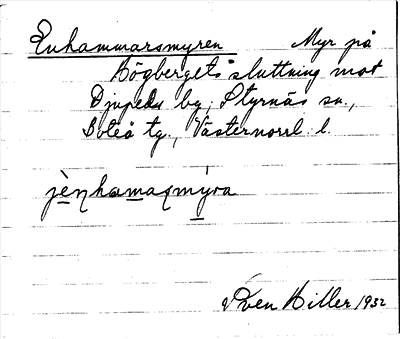 Enhammarsmyren Myr på
Högbergets sluttning mot
Djupeds by, Styrnäs sn.,
Boteå tg., Västernorrl. l.
Sven Hiller 1932